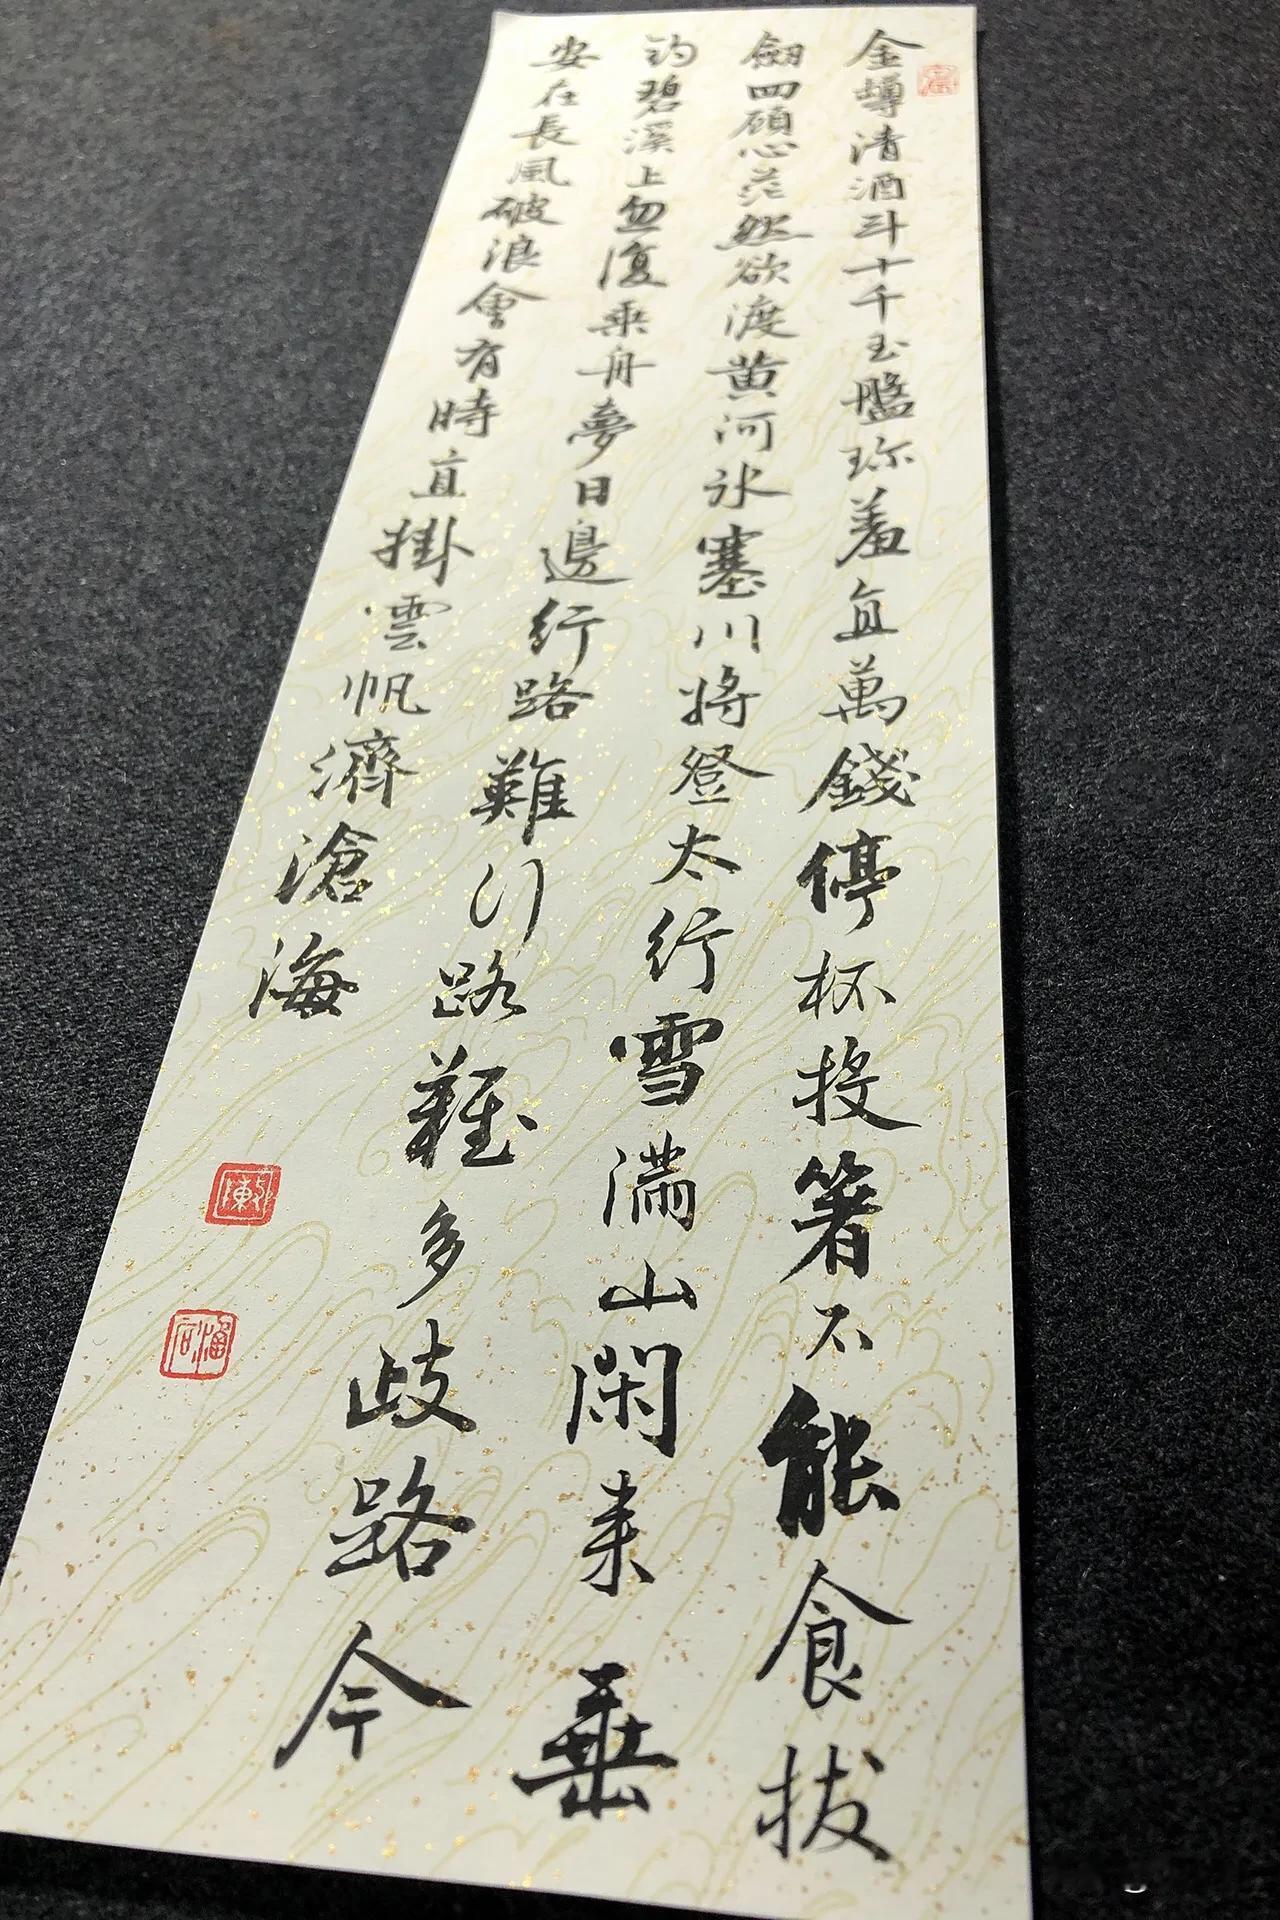 金罇清酒斗十千玉盤珎羞直萬錢停杯投箸不能食拔
劒四顧心茫然欲渡黄河冰塞川将登太行雪滿山閑来垂
釣碧溪上忽復乘舟夢日邊行路難行路難多歧路今
安在長風破浪會有時直掛雲帆濟滄海